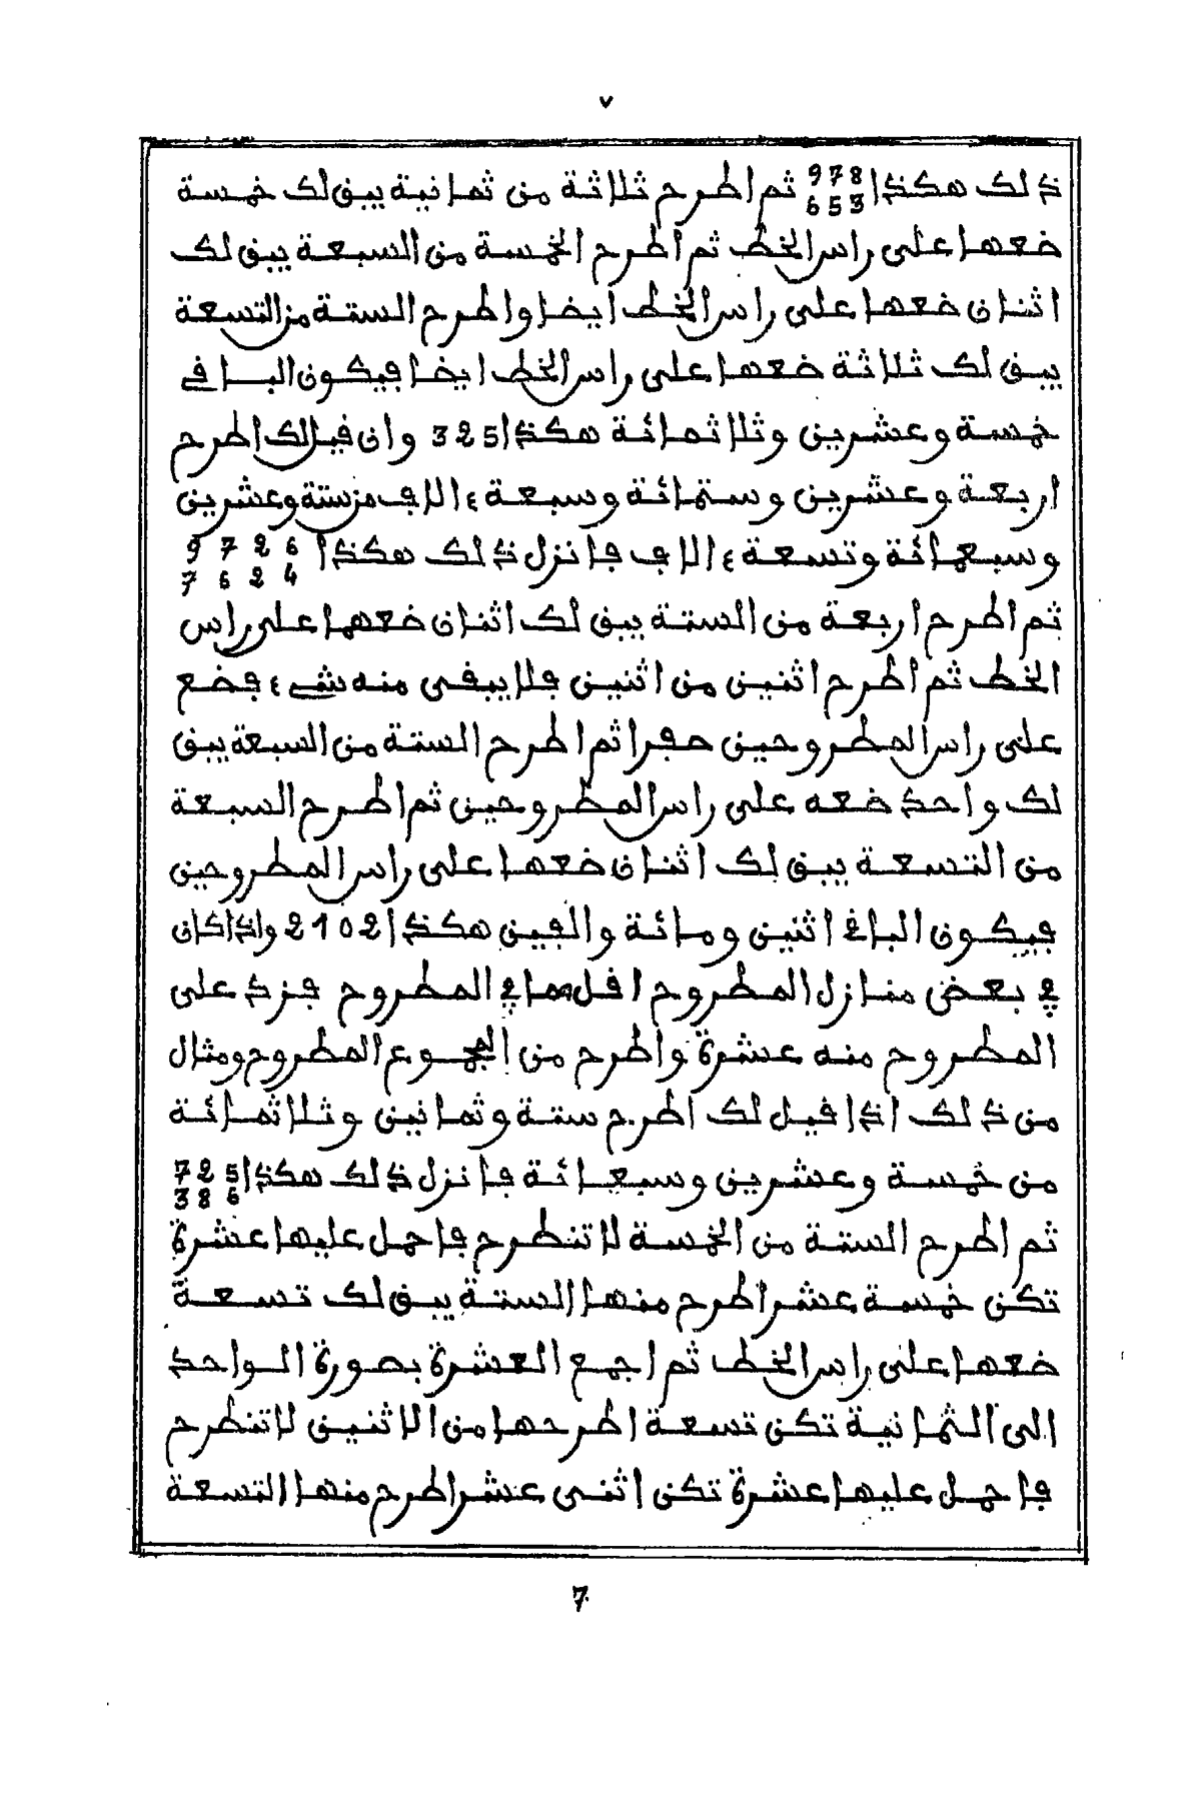 ٧
ذلك هكذا 978 ثم اطرح ثلاثة من ثمانية يبق لك خمسة
653
ضعها على راس الخط ثم اطرح الخمسة من السبعة يبق لك
اثنان ضعها على راس الخط ايضا واطرح الستة من التسعة
يبق لك ثلاثة ضعها على راس الخط ايضا فيكون الباقي
خمسة وعشرين وثلاثمائة هكذا 325 وان قيل لك اطرح
اربعة وعشرين وستمائة وسبعة ءالاف من ستة وعشرين
وسبعمائة وتسعة ءالاف فانزل ذلك هكذا 9 7 2 6
7 6 2 4
ثم اطرح اربعة من الستة يبق لك اثنان ضعهما على راس
الخط ثم اطرح اثنين من اثنين فلا يبقى منه شيء فضع
على راس المطروحين صفرا ثم اطرح الستة من السبعة يبق
لك واحد ضعه على راس المطروحين ثم اطرح السبعة
من التسعة يبق لك اثنان ضعها على راس المطروحين
فيكون الباقي اثنين ومائة والفين هكذا 2102 واذا كان
في بعض منازل المطروح اقل مما في المطروح فزد على
المطروح منه عشرة واطرح من المجموع المطروح ومثال
من ذلك اذا قيل لك اطرح ستة وثمانين وثلاثمائة
من خمسة وعشرين وسبعمائة فانزل ذلك هكذا 725
386
ثم اطرح الستة من الخمسة لا تنطرح فاحمل عليها عشرة
تكن خمسة عشر اطرح منها الستة يبق لك تسعة
ضعها على راس الخط ثم اجمع العشرة بصورة الواحد
الى الثمانية تكن تسعة اطرحها من الاثنين لا تنطرح
فاحمل عليها عشرة تكن اثنى عشر اطرح منها التسعة
7